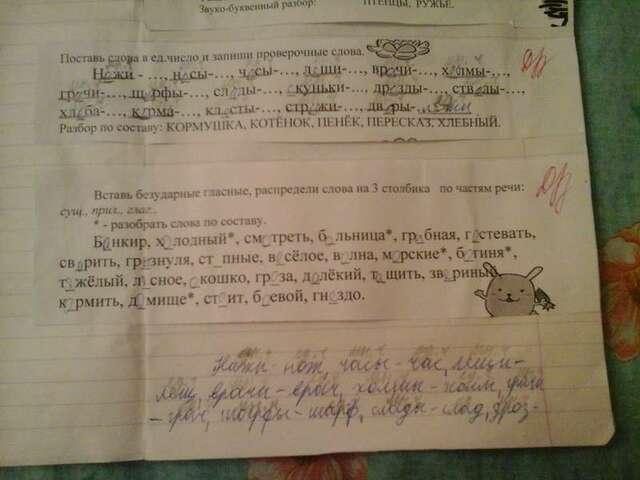 Звуко-буквенный разбор: ПТЕНЦЫ, РУЖЬЁ.
Поставь слова в ед.число и запиши проверочные слова.
Ножи - …, носы-…, часы-…, лещи-…, врачи-…, холмы-…,
грачи-…, шарфы-…, следы-…, окуньки-…, дрозды-…, стволы-…,
хлеба-…, корма-…, клесты-…, стрижи-…, дворы-
Разбор по составу: КОРМУШКА, КОТЁНОК, ПЕНЁК, ПЕРЕСКАЗ, ХЛЕБНЫЙ.
Вставь безударные гласные, распредели слова на 3 столбика по частям речи:
сущ., прил., глаг..
* - разобрать слова по составу.
Банкир, холодный*, смотреть, больница*, грибная, гостевать,
сварить, грызнуля, ст_пные, весёлое, волна, морские*, ботиня*,
тяжёлый, лесное, окошко, гроза, далёкий, тащить, звериные
кормить, домище*, стоит, боевой, гнездо.
Ножи - нож, часы - час, лещи -
лещ, врачи - врач, холмы - холм, грачи
- грач, шарфы - шарф, следы - след, дроз-